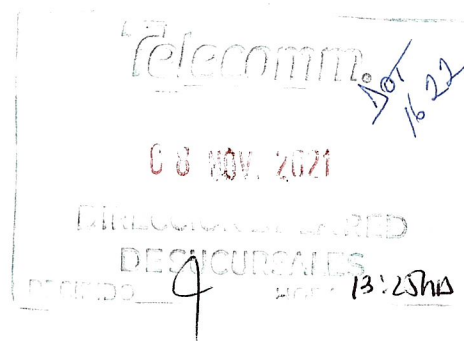 Telecomm.
DOT
1622
08 NOV. 2021
DIRECCION DE LA RED
DE SUCURSALES
RECIBIDO HORA 13:25hrs